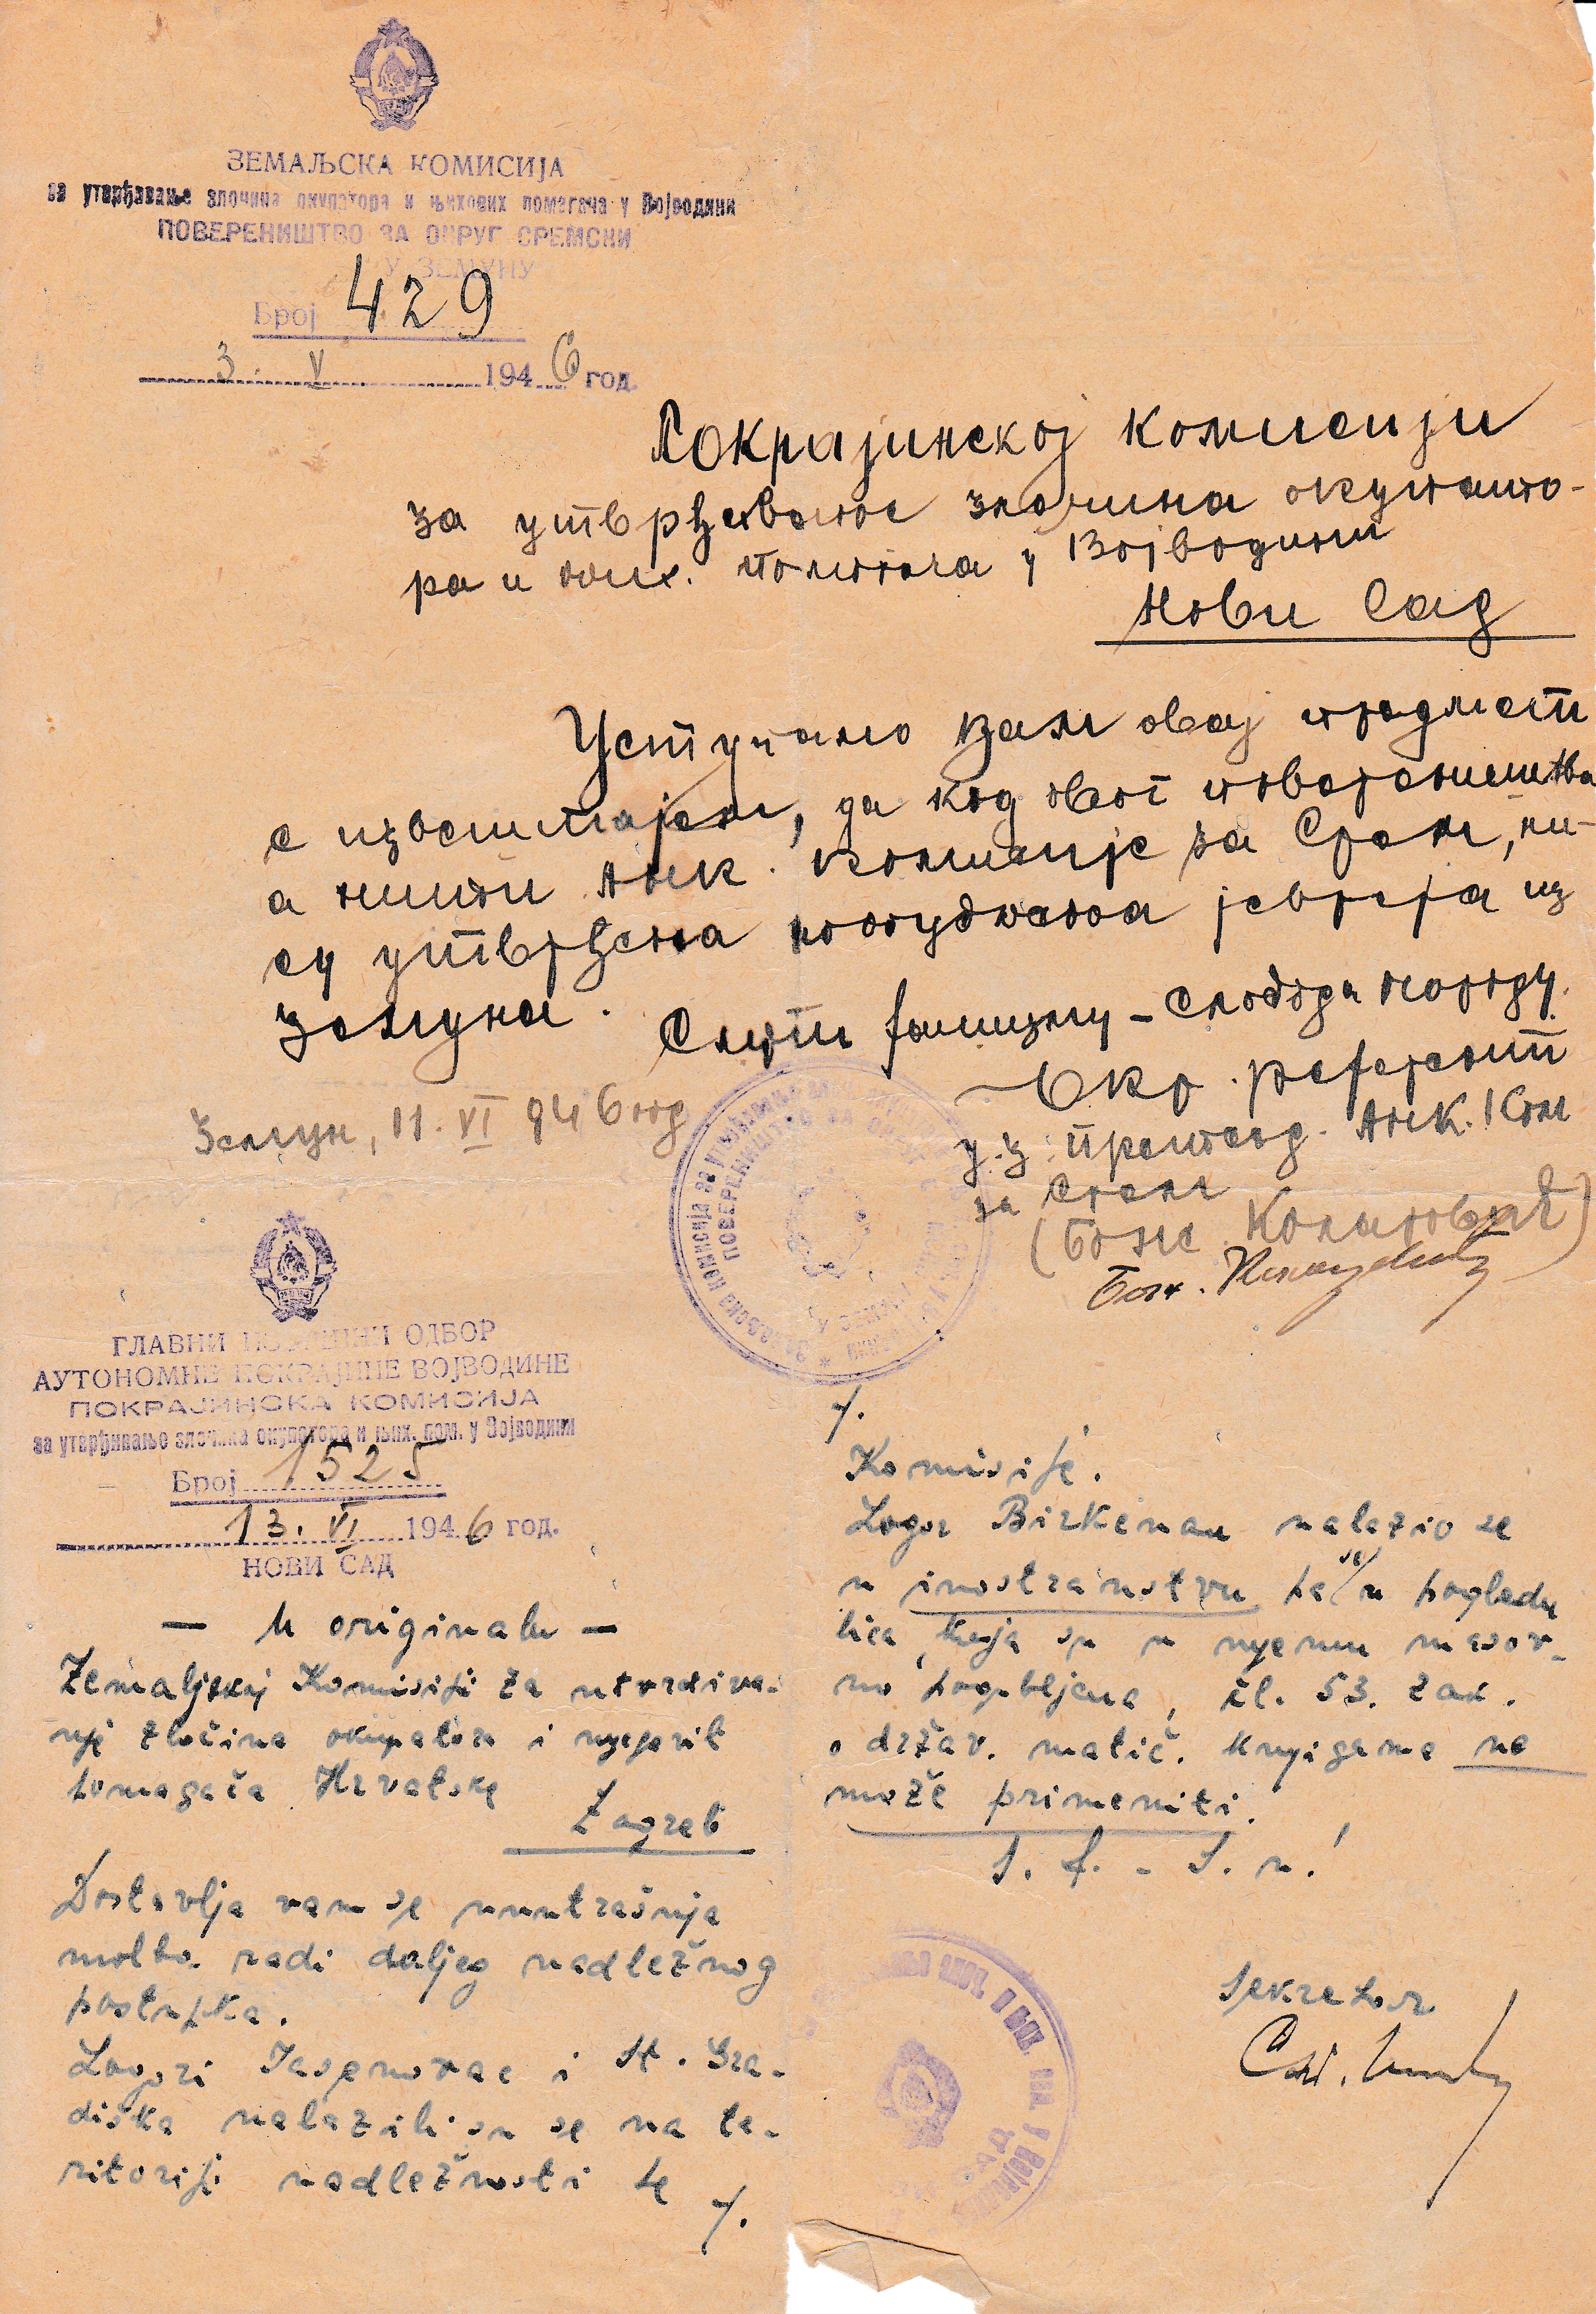 ЗЕМАЉСКА КОМИСИЈА
за утврђавање злочина окупатора и њихових помагача у Војводини
ПОВЕРЕНИШТВО ЗА ОКРУГ СРЕМСКИ
У ЗЕМУНУ
Број 429
3. V 1946 год.
Покрајинској комисији
за утврђивање злочина окупато-
ра и њих. помагача у Војводини
Нови Сад
Уступамо вам овај предмет
с извештајем, да код овог повереништва
а нити Анк. комисије за Срем, ни-
су утврђена јевреја из
Земуна.
Смрт фашизму – Слобода народу.
Окр. референт
у.з. претсед. Анк. Ком
за Срем
Земун, 11. VI 946 год
Земаљска комисија за утврђивање
ПОВЕРЕНИШТВО ЗА ОКРУГ
У ЗЕМУНУ
ГЛАВНИ НАРОДНИ ОДБОР
АУТОНОМНЕ ПОКРАЈИНЕ ВОЈВОДИНЕ
ПОКРАЈИНСКА КОМИСИЈА
за утврђивање злочина окупатора и њих. пом. у Војводини
Број 1525
13. VI 1946 год.
НОВИ САД
– U originalu –
Zemaljskoj Komisiji za utvrđiva-
nje zločina okupatora i njegovih
pomagača Hrvatske
Zagreb
Dostavlja vam se unutrašnja
molba radi daljeg nadležnog
postupka.
Logori Jasenovac i St. Gra-
diška nalazili su se na te-
ritoriji nadležnosti te
./.
./.
Komisije.
Logor Birkenau nalazio se
u inostranstvu pa se u pogledu
lica, koja su u njemu masov-
no pogubljena, čl. 53. zak.
o držav. matič. knjigama ne
može primeniti.
S. f. - S. n.!
Sekretar